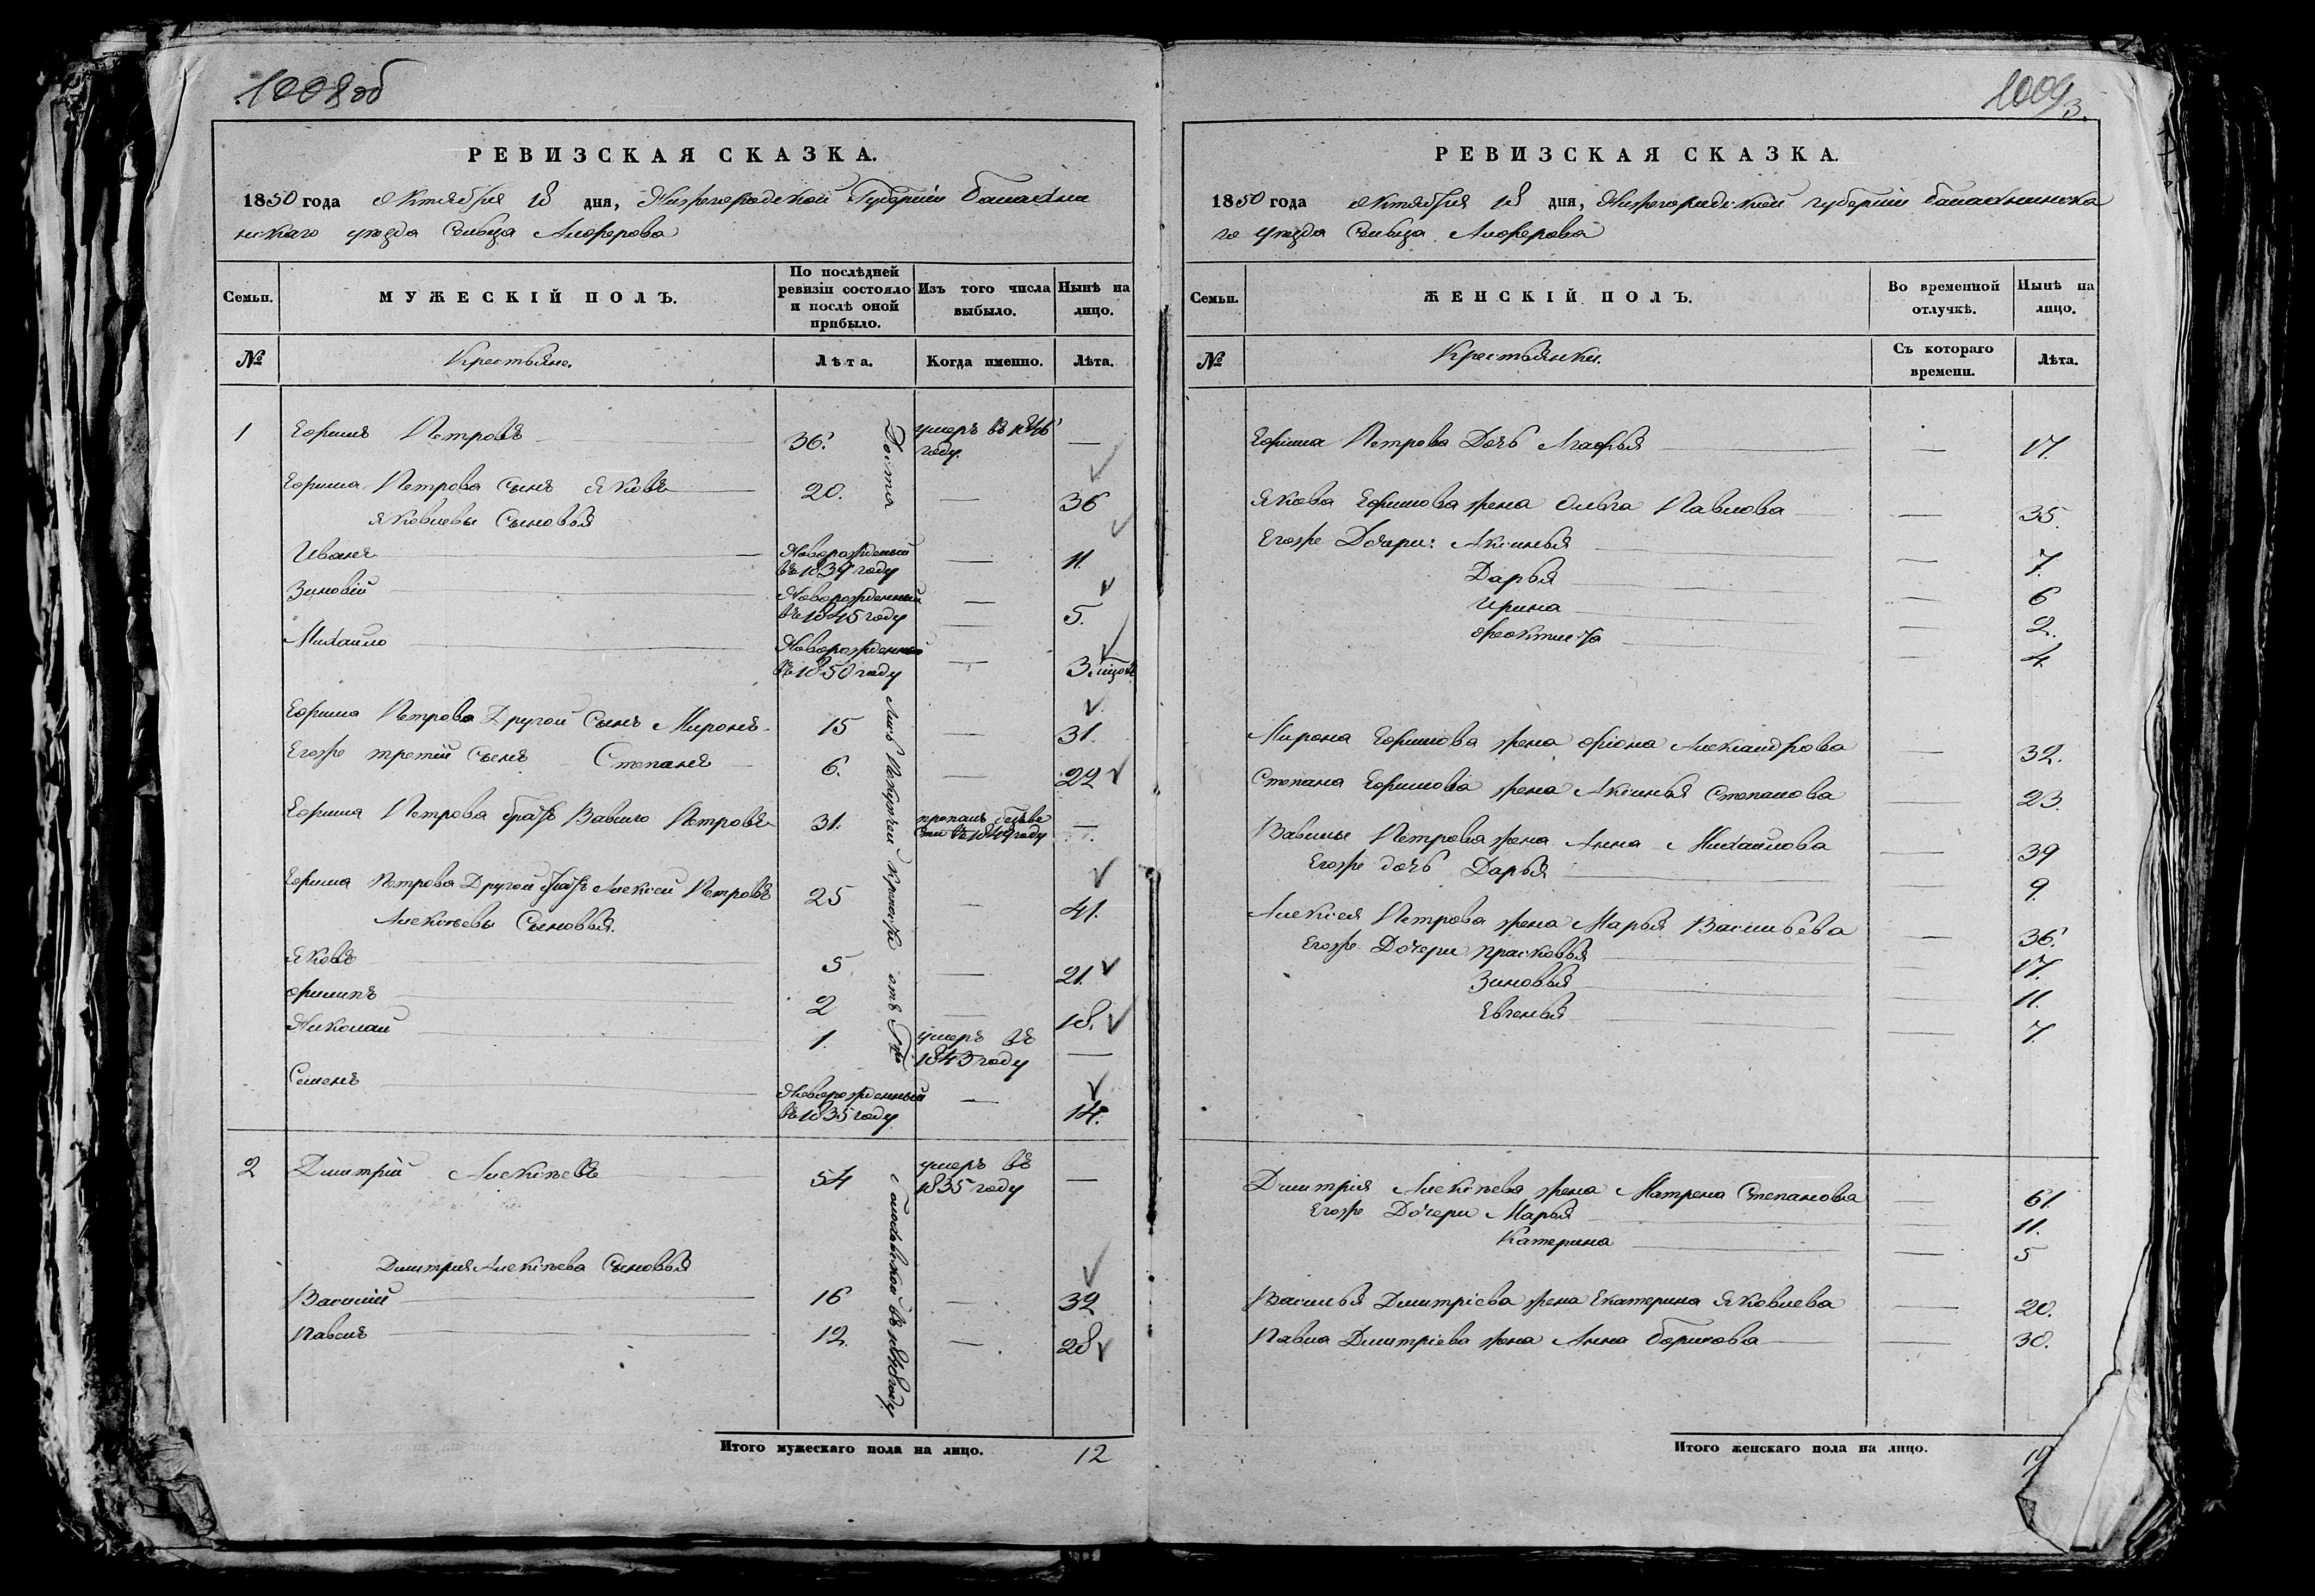 1008об
РЕВИЗСКАЯ СКАЗКА.
1850 года Октября 18 дня, Нижегородской Губерніи Балахни
нскаго уезда Сельца Алферова
Семьи.
МУЖЕСКІЙ ПОЛЪ.
По послѣдней
ревизіи состояло
и послѣ оной
прибыло.
Изъ того числа
выбыло.
Нынѣ на
лицо.
№
Крестьяне.
Лѣта.
Когда именно.
Лѣта.
1 Ефимъ Петровъ 36. умеръ въ 1846 —
году.
Ефима Петрова Сынъ Яковъ 20. — 36
Яковлевы Сыновья
Иванъ Новорожденый — 11.
въ 1839 году
Зиновій Новорожденный — 5.
въ 1845 году
Михайло Новорожденный — 3.
въ 1850 году
Ефима Петрова Другой Сынъ Миронъ 15 — 31.
Егоже третій Сынъ Степанъ 6. — 22
Ефима Петрова братъ Вавило Петровъ 31. пропалъ безъве —
сти въ 1849 году
Ефима Петрова Другой братъ Алексей Петровъ 25 — 41.
Алексѣевы Сыновья.
Яковъ 5 — 21.
Филипъ 2 — 18.
Николай 1. умеръ въ —
1843 году
Семенъ Новорожденный — 14.
въ 1835 году
2 Дмитрій Алексѣевъ 54 умеръ въ —
1835 году
Дмитрия Алексѣева Сыновья
Василий 16 — 32
Павелъ 12. — 28
отъ
Итого мужескаго пола на лицо. 12
1009
3.
РЕВИЗСКАЯ СКАЗКА.
1850 года Октября 18 дня, Нижегородской губерніи Балахнинска
го уезда Сельца Алферова
Семьи.
ЖЕНСКІЙ ПОЛЪ.
Во временной
отлучкѣ.
Нынѣ на
лицо.
№
Крестьянки.
Съ котораго
времени.
Лѣта.
Ефима Петрова Дочь Агафья — 17.
Якова Ефимова жена Ольга Павлова — 35.
Егоже Дочери: Аксинья — 7.
Дарья — 6
Ирина — 2.
Феоктиста — 4.
Мирона Ефимова жена Фіона Александрова — 32.
Степана Ефимова жена Аксинья Степанова — 23.
Вавилы Петрова жена Анна Михайлова — 39
Егоже дочь Дарья — 9.
Алексея Петрова жена Марья Васильева — 36.
Егоже Дочери Прасковья — 17.
Зиновья — 11.
Евгенья — 7.
Дмитрія Алексѣева жена Матрена Степанова — 61.
Егоже Дочери Марья — 11.
Катерина — 5
Василья Дмитріева жена Екатерина Яковлева — 20.
Павла Дмитріева жена Анна Борисова — 30.
Итого женскаго пола на лицо. 19